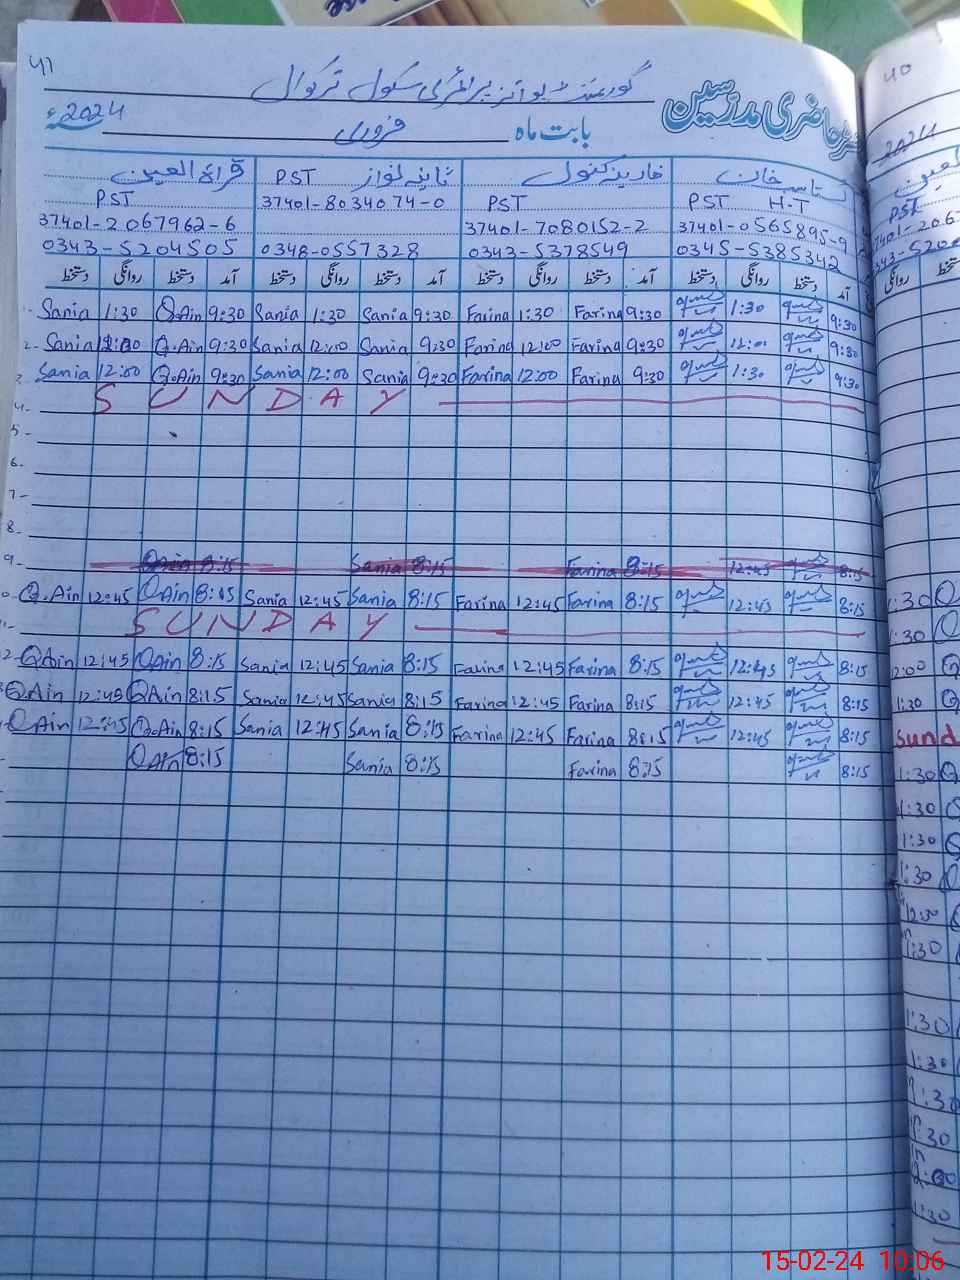 41
گورنمنٹ بوائز پرائمری سکول ترکوال
رجسٹر حاضری مدرسین
بابت ماہ فروری 2024ء
خان فارینہ کنول ثانیہ نواز قراۃ العین
PST H.T PST PST PST
37401-0565895-9 37401-7080152-2 37401-8034074-0 37401-2067962-6
0345-5385342 0343-5378549 0348-0557328 0343-5204505
آمد دستخط روانگی دستخط آمد دستخط روانگی دستخط آمد دستخط روانگی دستخط آمد دستخط روانگی دستخط
Sania 1:30 Q.Ain 9:30 Sania 1:30 Sania 9:30 Farina 1:30 Farina 9:30 1:30 9:30
2- Sania Q.Ain 9:30 Sania 12:00 Sania 9:30 Farina 12:00 Farina 9:30 12:00 9:30
3- Sania 12:00 Q.Ain 9:30 Sania 12:00 Sania 9:30 Farina 12:00 Farina 9:30 1:30 9:30
4- SUNDAY
5-
6-
7-
8-
9- QAin 8:15 Sania 8:15 Farina 8:15 12:45 8:15
Q.Ain 12:45 QAin 8:15 Sania 12:45 Sania 8:15 Farina 12:45 Farina 8:15 12:45 8:15
SUNDAY
QAin 12:45 QAin 8:15 Sania 12:45 Sania 8:15 Farina 12:45 Farina 8:15 12:45 8:15
QAin 12:45 QAin 8:15 Sania 12:45 Sania 8:15 Farina 12:45 Farina 8:15 12:45 8:15
QAin 12:45 Q.Ain 8:15 Sania 12:45 Sania 8:15 Farina 12:45 Farina 8:15 12:45 8:15
QAin 8:15 Sania 8:15 Farina 8:15 8:15
40
2024
PST
روانگی
1:30
1:30
12:00
1:30
Sund
1:30
1:30
1:30
1:30
12:30
1:30
1:30
1:30
1:30
15-02-24 10:06